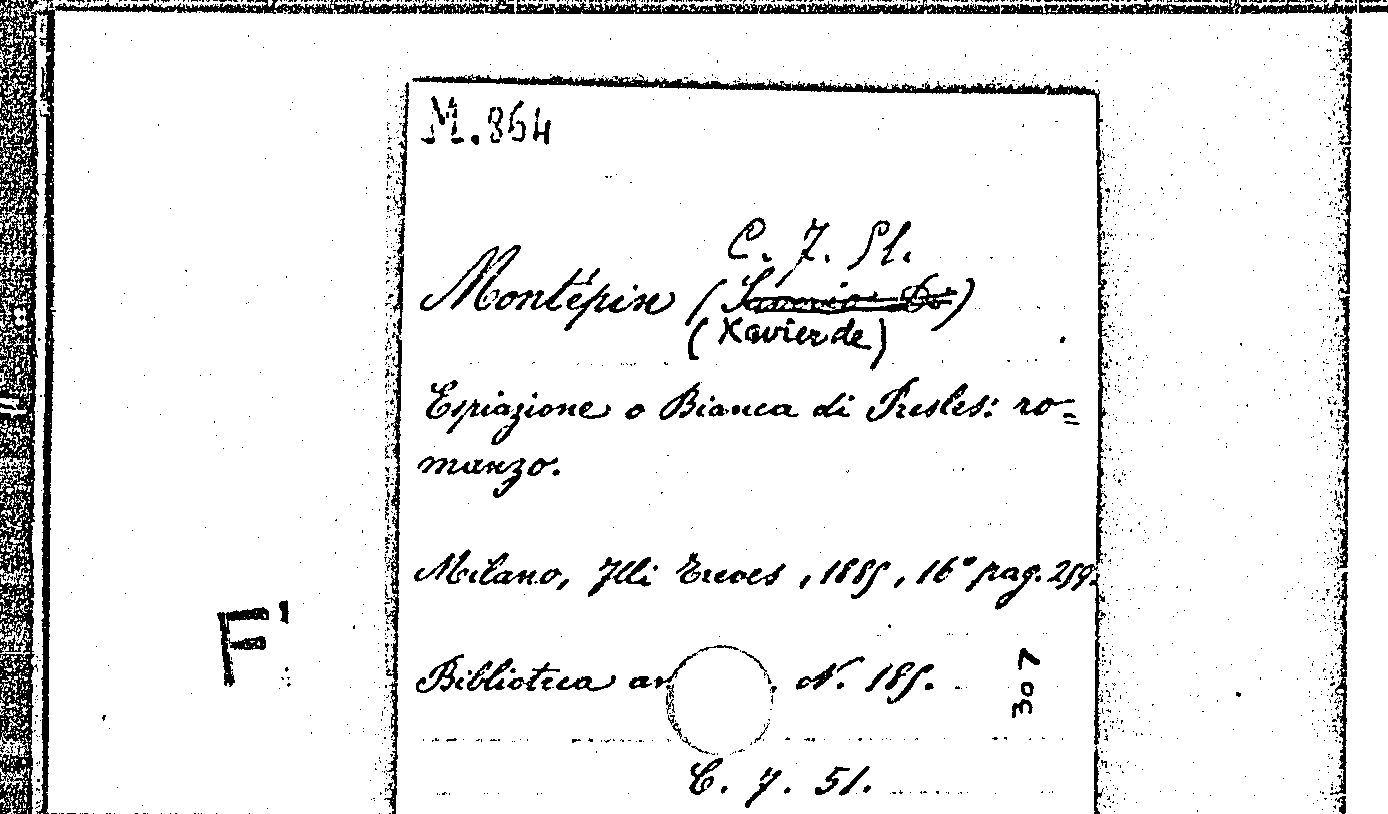 M.864
C. 7. 51.
Montépin (Saverio Di)
(Xavier de)
Espiazione o Bianca di Presles: ro=
manzo.
Milano, Flli Treves, 1885, 16° pag. 259.
Biblioteca am , N. 185.
307
C. 7. 51.
F'